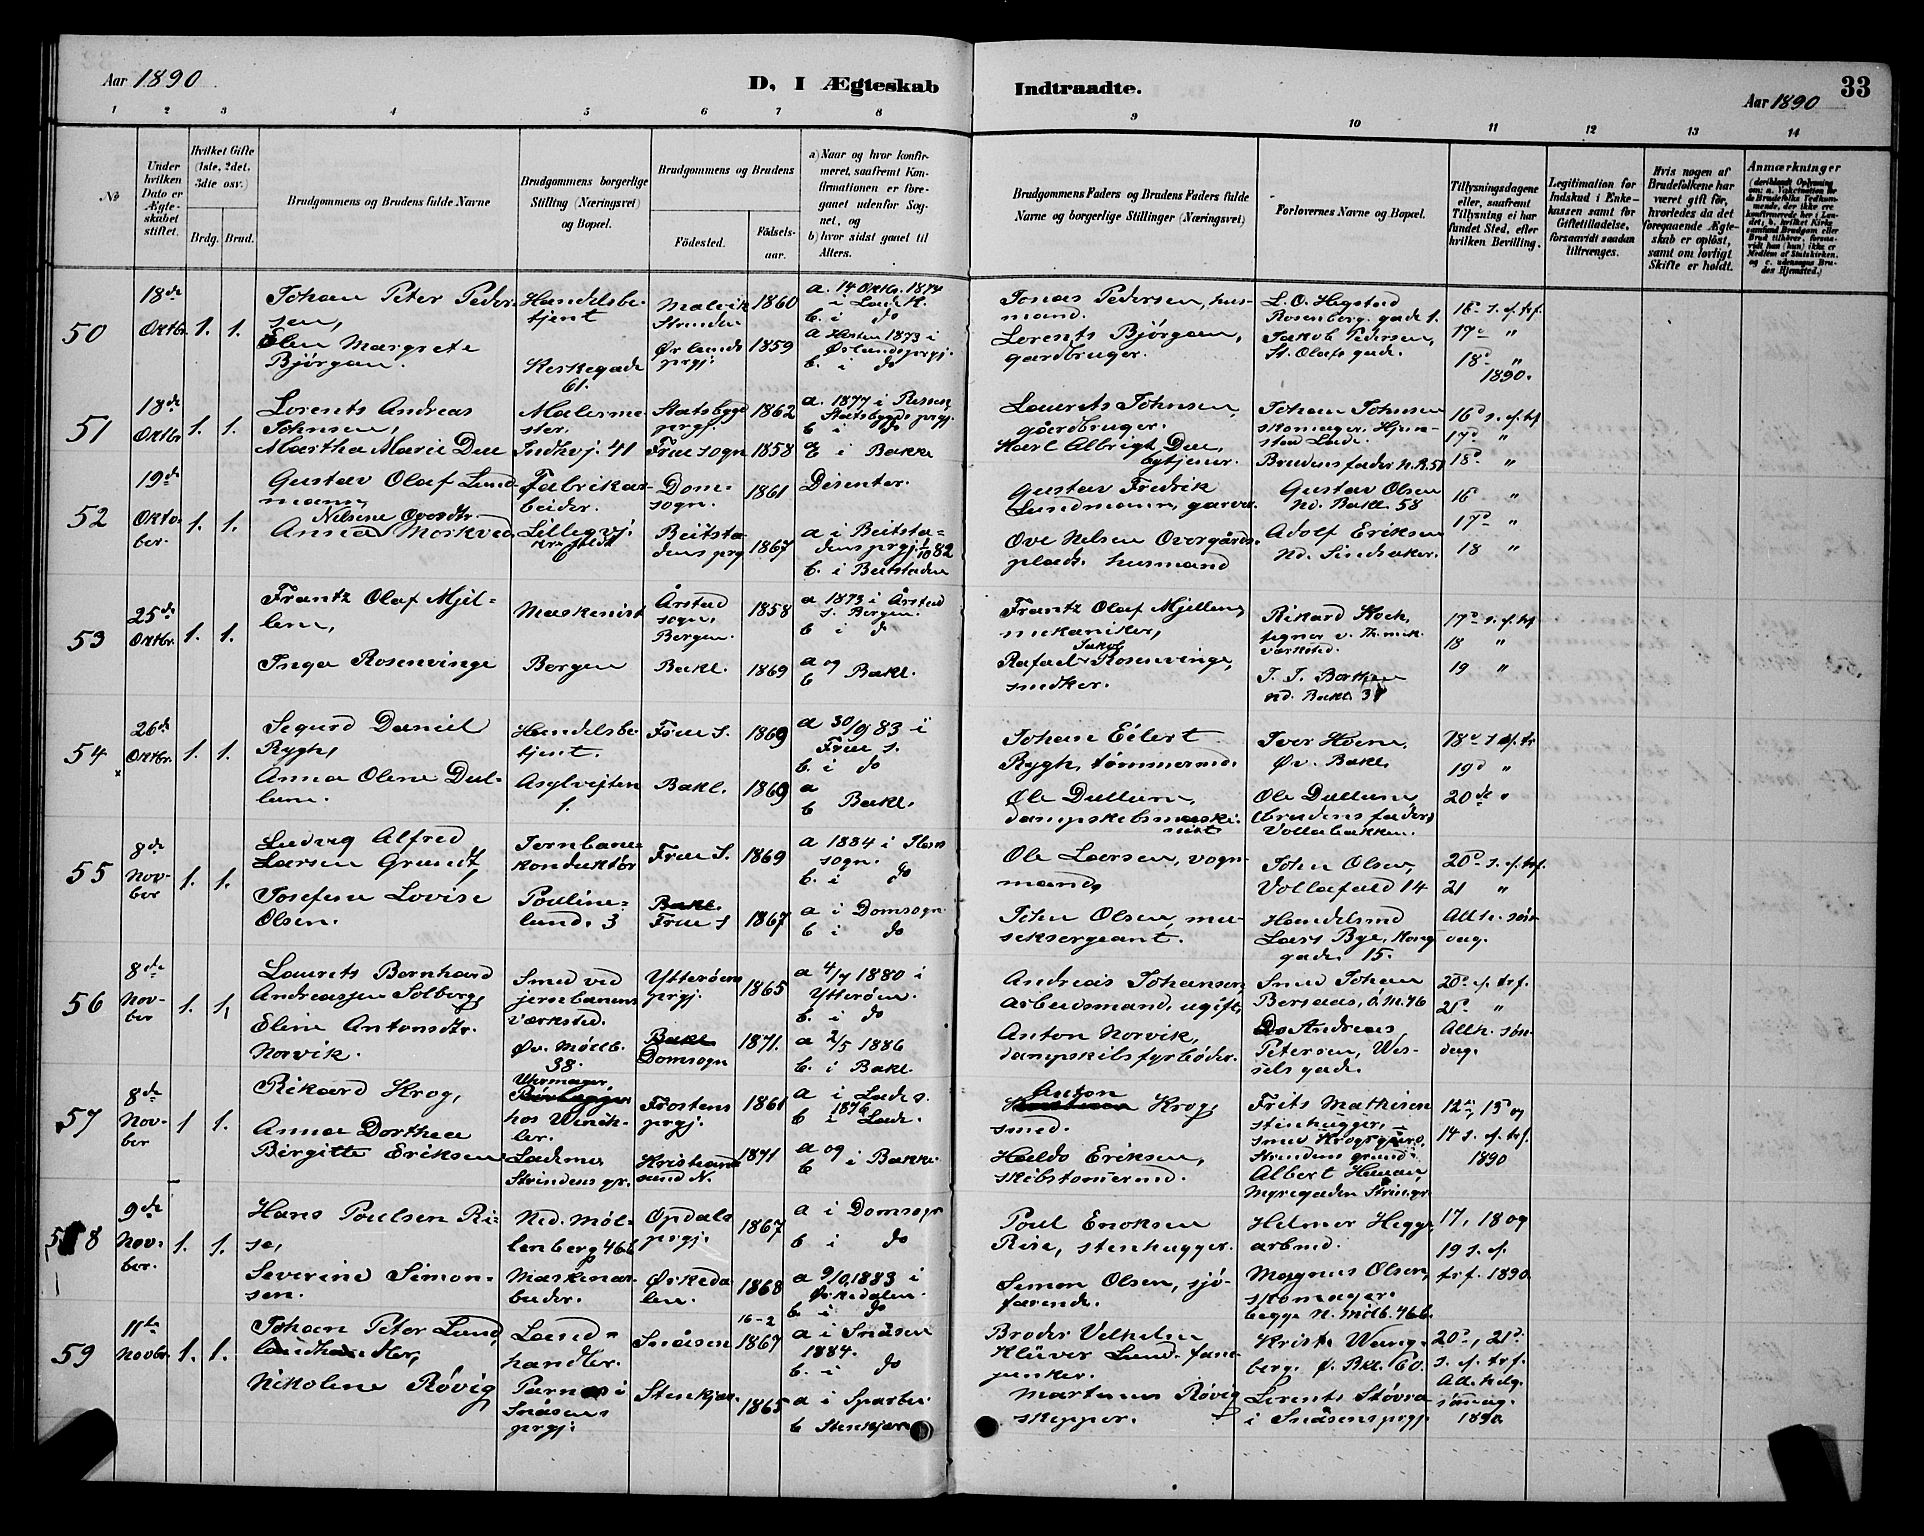 Aar 1890
D, I Ægteskab
Indtraadte.
Aar 1890
33
1 2 3 4 5 6 7 8 9 10 11 12 13 14
No
Under hvilken Dato er Ægteskabet stiftet.
Hvilket Gifte (1ste, 2det, 3die osv.)
Brdg. Brud.
Brudgommens og Brudens fulde Navne
Brudgommens borgerlige Stilling (Næringsvei) og Bopæl.
Brudgommens og Brudens
Fødested. Fødselsaar.
a) Naar og hvor konfirmeret, saafremt Konfirmationen er foregaaet udenfor Sognet, og
b) hvor sidst gaaet til Alters.
Brudgommens Faders og Brudens Faders fulde Navne og borgerlige Stillinger (Næringsvei)
Forlovernes Navne og Bopæl.
Tillysningsdagene eller, saafremt Tillysning ei har fundet Sted, efter hvilken Bevilling.
Legitimation for Indskud i Enkekassen samt for Giftetilladelse, forsaavidt saadan tiltrænges.
Hvis nogen af Brudefolkene har været gift før, hvorledes da det foregaaende Ægteskab er opløst, samt om lovligt Skifte er holdt.
Anmærkninger
50
18de Oktbr. 1. 1.
Johan Peter Pedersen,
Elen Margrete
Bjørgan.
Handelsbetjent
Kirkegade 61.
Malvik Strinden 1860
Ørlands prgj. 1859
a. 14 Oktbr. 1874 i Lade K.
b. i do
a Høsten 1873 i Ørlands prgj.
b. i do
Jonas Pedersen, husmand.
Lorents Bjørgan, gardbruger.
L. O. Hegstad
Rosenborg gade 1.
Jakob Pedersen,
St. Olafs gade.
16d s. ef. trf.
17d "
18d "
1890.
51
18de Oktbr 1. 1.
Lorents Andreas
Johnsen,
Martha Marie Due
Malermester.
Indhvj. 41
Statsbygd prgj. 1862
Frue sogn 1858
a. 1877 i Rissen Statsbygds prgj.
b i do
b i Bakke
Laurits Johnsen,
gårdbruger.
Karl Albrigt Due
bytjener.
Johan Johnsen
skomager,
Brudens fader
16d s. ef. trf
17d "
18d. "
52
19de Oktober. 1. 1.
Gustav Olaf Lundmann
Nilsine Overdtr.
Anna Moskved
Fabrikarbeider.
Domsogn. 1861
Beitstadens prg 1867
Disenter.
a i Beitstadens prgj. 1/10 82
b. i Beitstaden
Gustav Fredrik
Lundmann, garver.
Ove Nelsen Overgårdsplads. husmand
Gustav Olsen
Nd. Bakl. 58
Adolf Eriksen
Nd. Sindsaker.
16 "
17d "
18 "
53
25de Oktbr. 1. 1.
Frantz Olaf Mjellem,
Inga Rosenvinge
Maskinist
Bergen
Årstad sogn, Bergen. 1858
Bakl. 1869
a 1873 i Årstad s. Bergen.
b i do
a og b Bakl.
Frantz Olaf Mjellem,
mekaniker,
Rafael Jakob Rosenvinge,
snedker.
Rikard Koch,
tegner v. Tr. mek. værksted.
J. J. Bakken
nd. Bakl. 37
17d s. ef. trf
18 "
19 "
54
26de Oktbr. 1. 1.
Sigurd Daniel
Rygh,
Anna Oline Dullum.
Handelsbetjent.
Asylveiten 1.
Frue S. 1869
Bakl. 1869
a 30/9 83 i Frue s.
b. i do
a
b Bakl.
Johan Eilert
Rygh, tømmermd.
Ole Dullum,
dampskibsmaskinist
Iver Hoem,
Øv. Bakl.
Ole Dullum,
(brudens fader)
Vollabakken.
18d s. ef. tr
19d "
20de "
55
8de Novber 1. 1.
Ludvig Alfred
Larsen Grundt,
Josefine Lovise
Olsen.
Jernbanekonduktør
Paulinelund. 3
Frue S. 1869
Bakl.
Frue S 1867
a 1884 i Ilens sogn.
b. i do
a i Domsogn
b i do
Ole Larsen, vognmand,
John Olsen, musiksergeant.
John Olsen,
Vollafald 14
Handelsmd
Lars Bye, Konggade 15.
20d s. ef. trf.
21 "
Allh. søndag.
56
8de Novber 1. 1,
Laurits Bernhard
Andreassen Solberg,
Eline Antonsdtr.
Norvik.
Smed ved jernbanens værksted.
Øv. Møllb. 38.
Ytterøens prgj. 1865
Bakl
Domsogn 1871.
a 4/7 1880 i Ytterøen.
b. i do
a 2/5 1886
b. i Bakl.
Andreas Johansen,
arbeidsmand, ugift,
Anton Norvik,
dampskibsfyrbøder.
Smed Johan
Bersaas, ö. M. 46
Do Andreas
Petersen, Wesselsgade.
20d ef. trf.
21d. "
Allh. søndag.
57
8de Novber 1 1.
Rikard Krog,
Anna Dorthea
Birgitte Eriksen
Uhrmager
hos Winckler.
Lademo,
Strindens gr.
Frostens prgj. 1861
Kristiansund N. 1871
a i Lade s. 1876
b i Lade.
a og b i Bakke
Anton Krog,
smed.
Haldo Eriksen,
skibstømermd.
Frits Mathisen
stenhugger,
Strindens grund.
Albert Hanan,
Myregaden Stringr.
12te, 13d og
14 s. ef. trf.
1890
58
9de Novber. 1. 1.
Hans Poulsen Rise,
Severine Simonsen.
Ned. Møllenberg 46b
Maskinarbeider.
Opdals prgj. 1867
Ørkedalen. 1868
a i Domsogn
b i do
a 9/10 1883 i Ørkedalen.
b. i do
Poul Enoksen
Rise, stenhugger.
Simon Olsen, sjøfarende.
Helmer Hegge,
arbmd.
Magnus Olsen,
skomager.
begge N. Mølb. 46b.
17, 18 og
19 s. ef.
trf. 1890
59
11te Novbr. 1. 1.
Johan Peter Lund,
Landhandler,
Nikoline Røvig
Landhandler.
i Snåsens prgj:
Snåsen 16-2 1867
Stenkjær 1865
a i Snåsen 1884.
b. i do
a i Sparbu
b Stenkjær
Broder Velhelm
Klüver Lund.
Martinus Røvig
skipper.
Krist. Wangberg. Ø. Bkl. 60.
Lorents Støvra
i Snåsens prgj
20d, 21d.
s. ef. trf.
Al. helg.
søndag.
1890